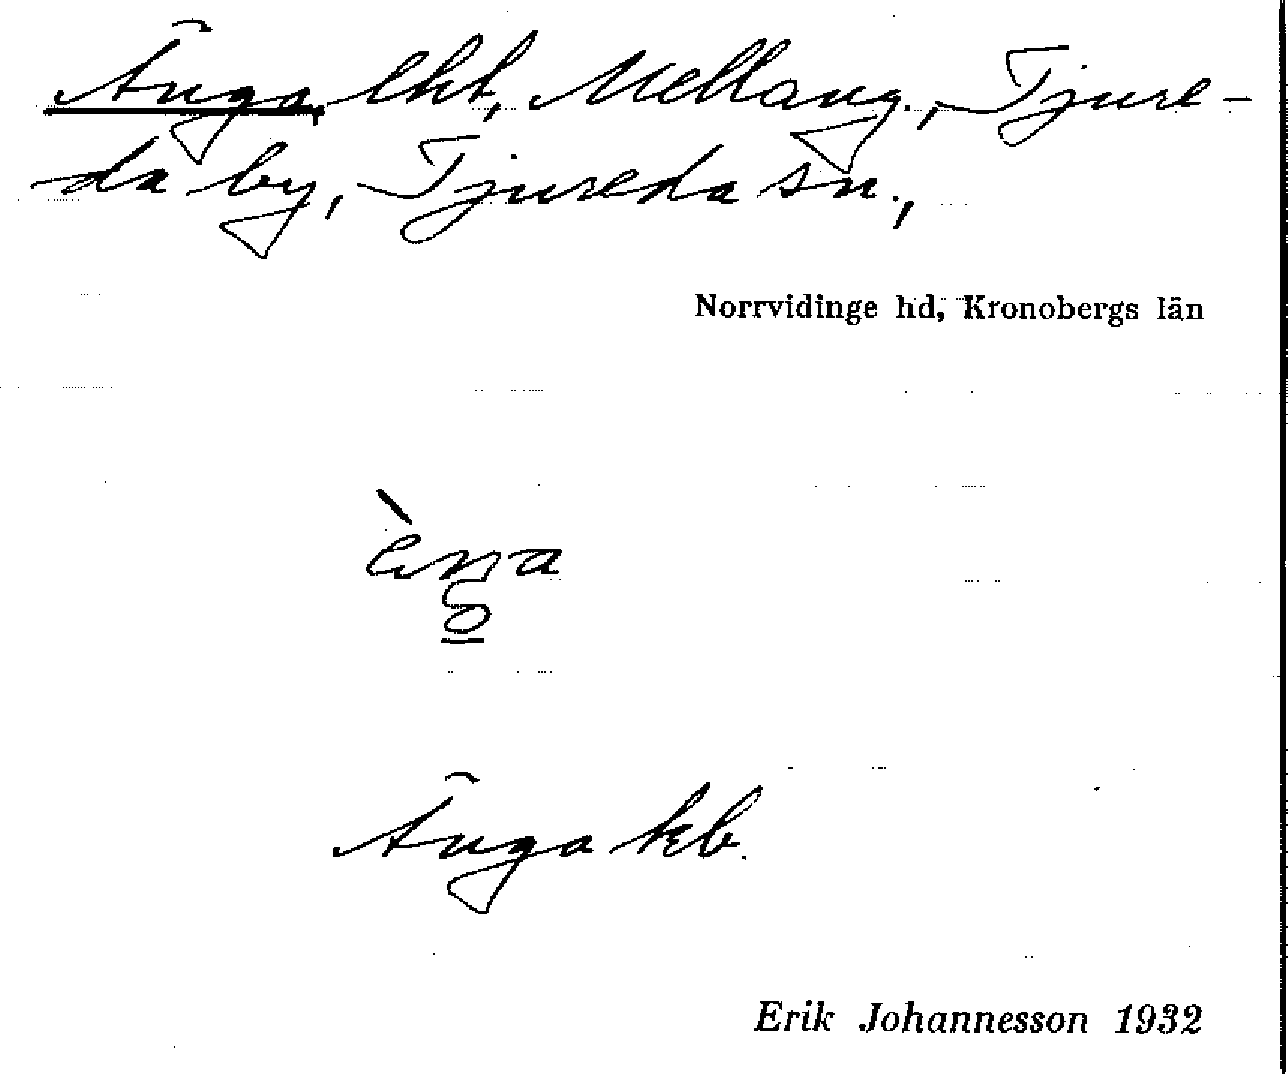 Änga, lht, Mellang., Tjure-
da by, Tjureda sn.,
Norrvidinge hd, Kronobergs län
Änga kb.
Erik Johannesson 1932